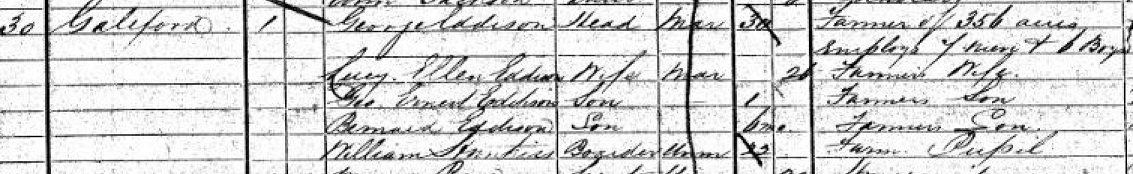 30 Galeford 1 George Eddison Head Mar 30 Farmer of 356 acres
employs 7 men & 6 Boys
Lucy Ellen Eddison Wife Mar 26 Farmers Wife
Geo. Ernest Eddison Son - 1 Farmers Son
Bernard Eddison Son 6mo. Farmers Son
William Boarder Unm 22 Farm Pupil